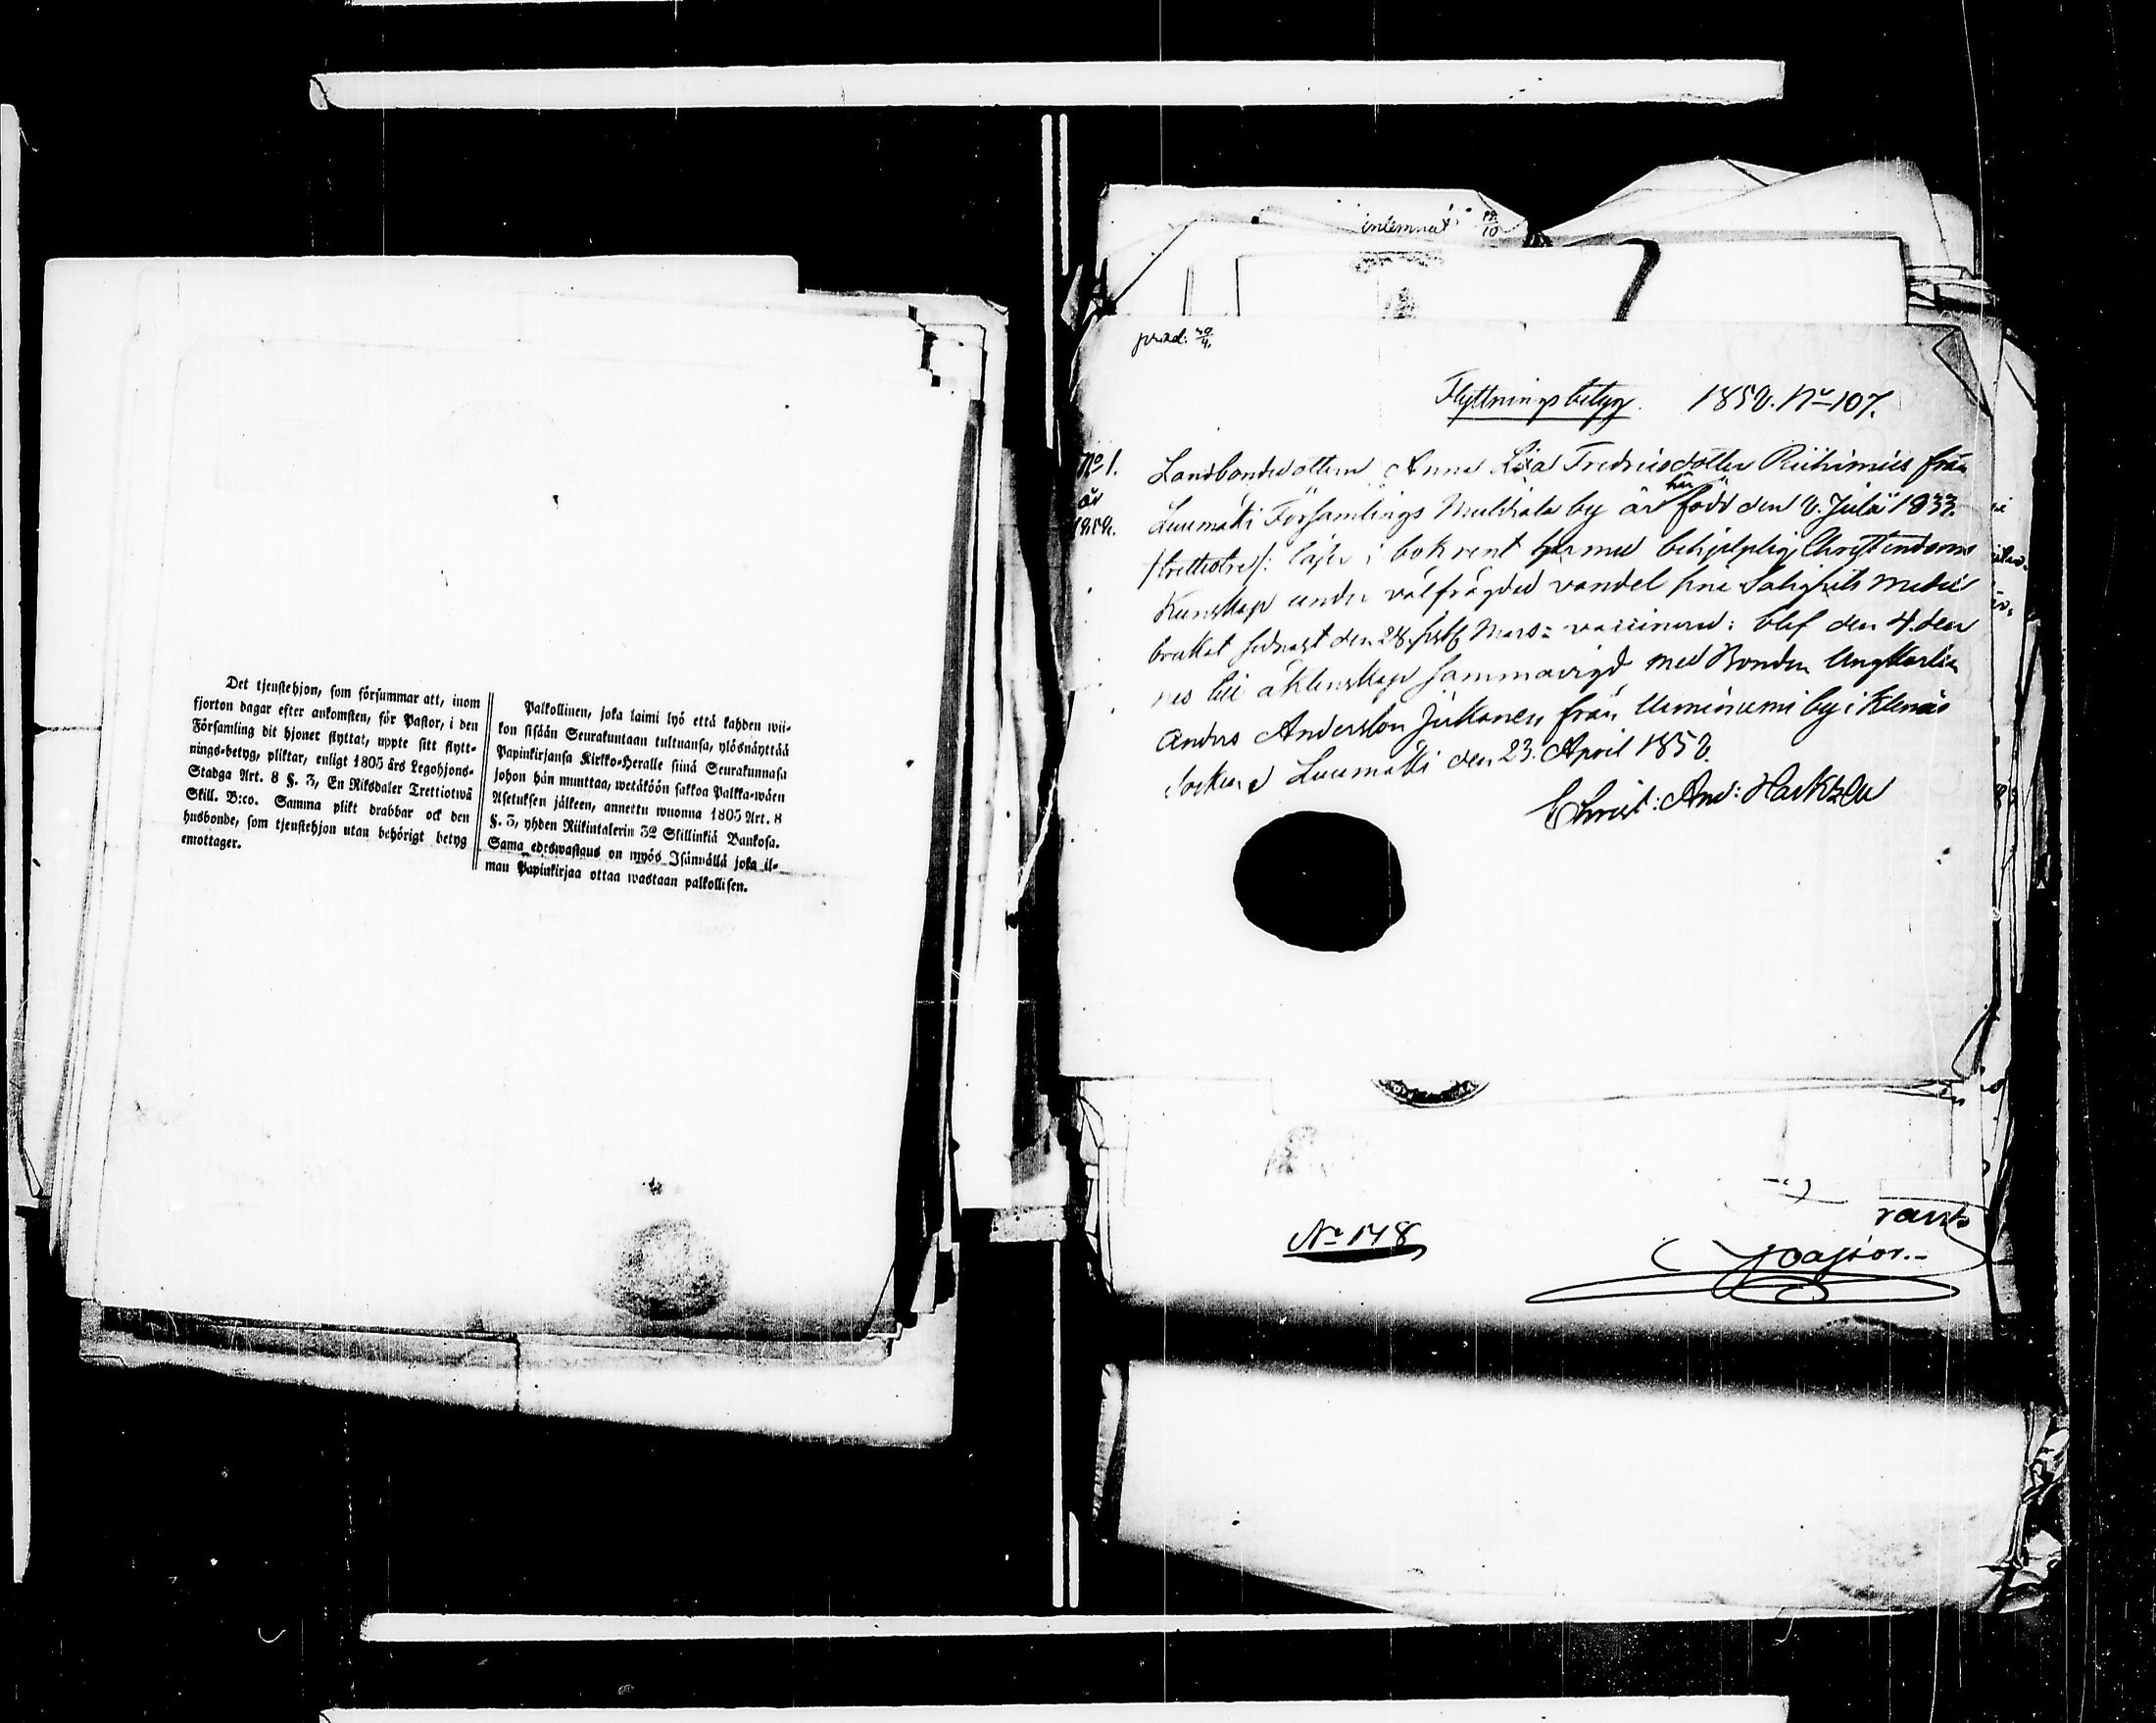 Det tjenstehjon, som försummar att, inom
fjorton dagar efter ankomsten, för Pastor, i den
Församling dit hjonet flyttat, uppte sitt flytt-
nings-betyg, pliktar, enligt 1805 års Legohjons-
Stadga Art. 8 §. 3, En Riksdaler Trettiotwå
Skill. B:co. Samma plikt drabbar ock den
husbonde, som tjenstehjon utan behörigt betyg
emottager.
Palkollinen, joka laimi lyö että kahden wii-
kon sisään Seurakuntaan tultuansa, ylösnäyttää
Papinkirjansa Kirkko-Heralle siinä Seurakunnasa
johon hän muuttaa, wetäköön sakkoa Palkka-wäen
Asetuksen jälkeen, annettu wuonna 1805 Art. 8
§. 3, yhden Riikintalerin 32 Skillinkiä Bankosa.
Sama edeswastaus on myös Isännällä joka il-
man Papinkirjaa ottaa wastaan palkollisen.
inlemnat 18/10
prod. 30/4.
Flyttningsbetyg. 1852. No 107.
No 1.
år
1852.
Landbondedottern Anna Lisa Fredricsdotter Riihimies från
Luumäki Församlings by är här född den 2. Julii 1833
/trettiotre/: läser i bok rent har med behjelplig Christendoms
Kunskap under välfrägdad vandel sina Salighets medel
brukat sednast den 28. Mars: vaccinerad: blef den 4. den
nes till äktenskap sammanvigd med Bonden Ungkarlen
Anders Andersson Jukkanen från by i Klemis
Socken. Luumäki den 23. April 1852.
Christ: And: Hacktzell
No 148
Pastor.